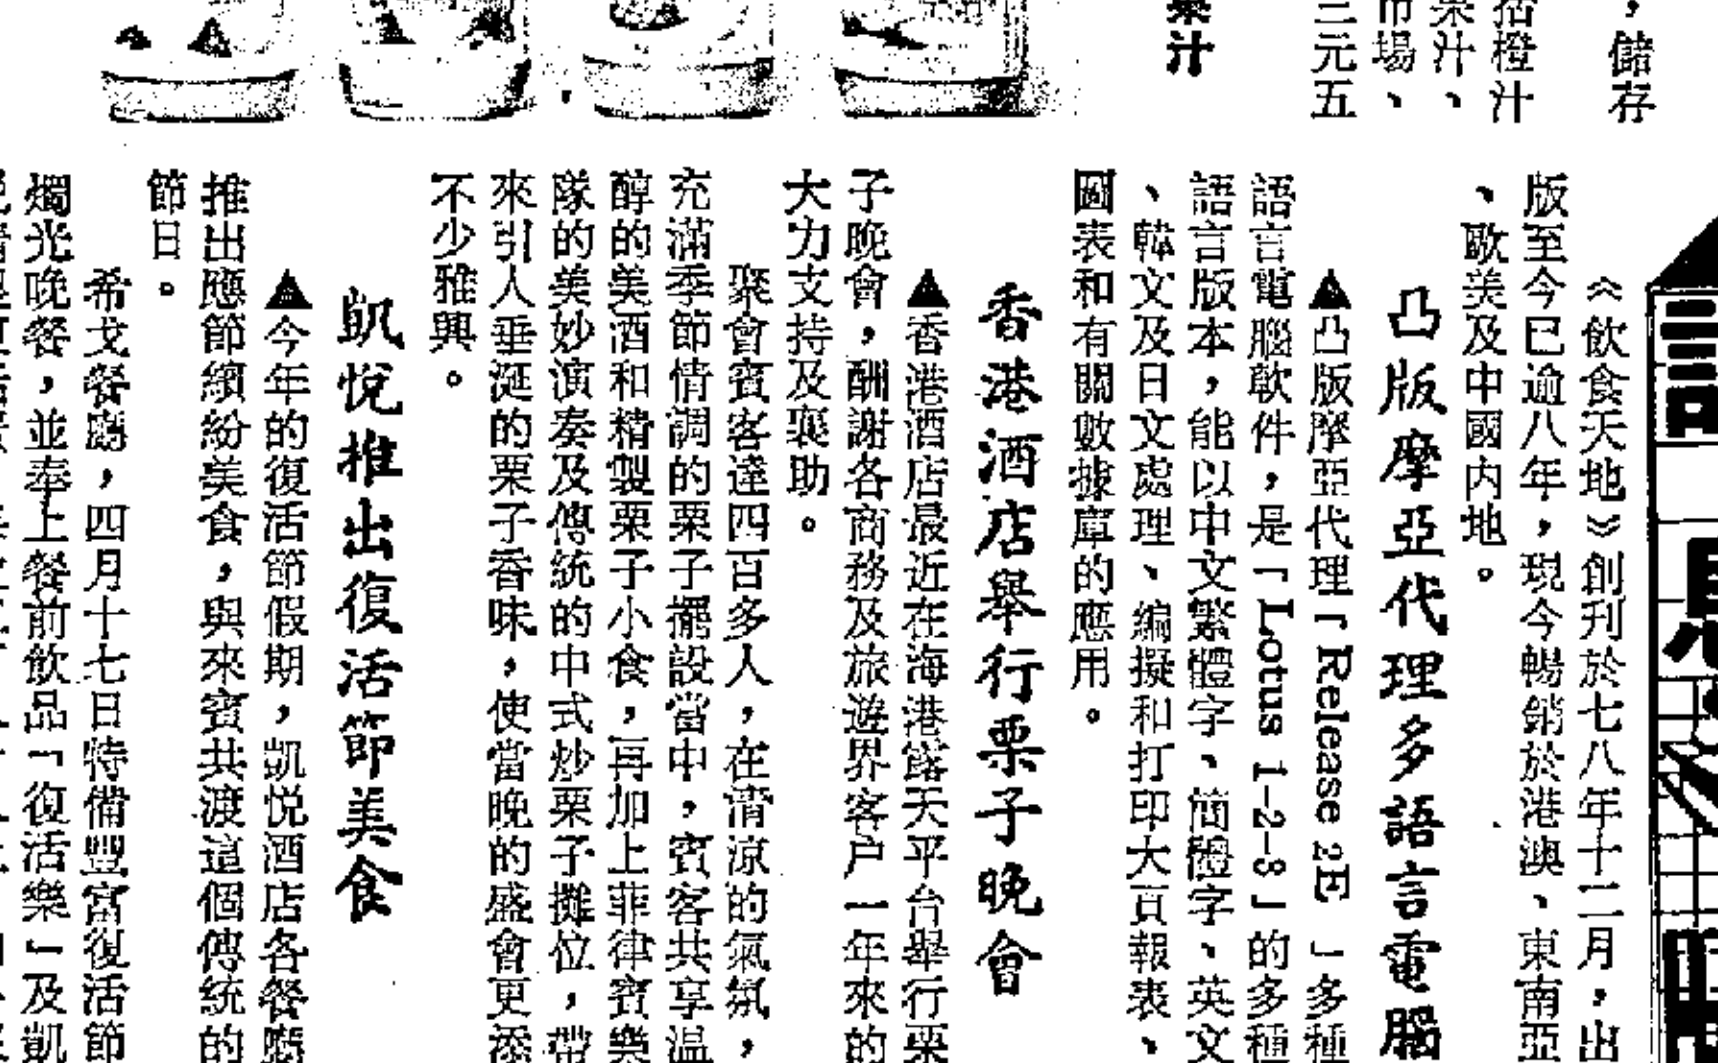 ，儲存
括橙汁
果汁、
市場、
三元五
汁
《飲食天地》創刊於七八年十二月，出
版至今已逾八年，現今暢銷於港澳、東南亞
、歐美及中國內地。
凸版摩亞代理多語言電腦
▲凸版摩亞代理「Release 2E 」多種
語言電腦軟件，是「Lotus 1-2-3」的多種
語言版本，能以中文繁體字、簡體字、英文
、韓文及日文處理、編擬和打印大頁報表、
圖表和有關數據庫的應用。
香港酒店舉行栗子晚會
▲香港酒店最近在海港露天平台舉行栗
子晚會，酬謝各商務及旅遊界客户一年來的
大力支持及襄助。
聚會賓客達四百多人，在清涼的氣氛，
充滿季節情調的栗子擺設當中，賓客共享温
醇的美酒和精製栗子小食，再加上菲律賓樂
隊的美妙演奏及傳統的中式炒栗子攤位，帶
來引人垂涎的栗子香味，使當晚的盛會更添
不少雅興。
凱悅推出復活節美食
▲今年的復活節假期，凱悅酒店各餐廳
推出應節繽紛美食，與來賓共渡這個傳統的
節日。
希戈餐廳，四月十七日特備豐富復活節
燭光晚餐，並奉上餐前飲品「復活樂」及凱